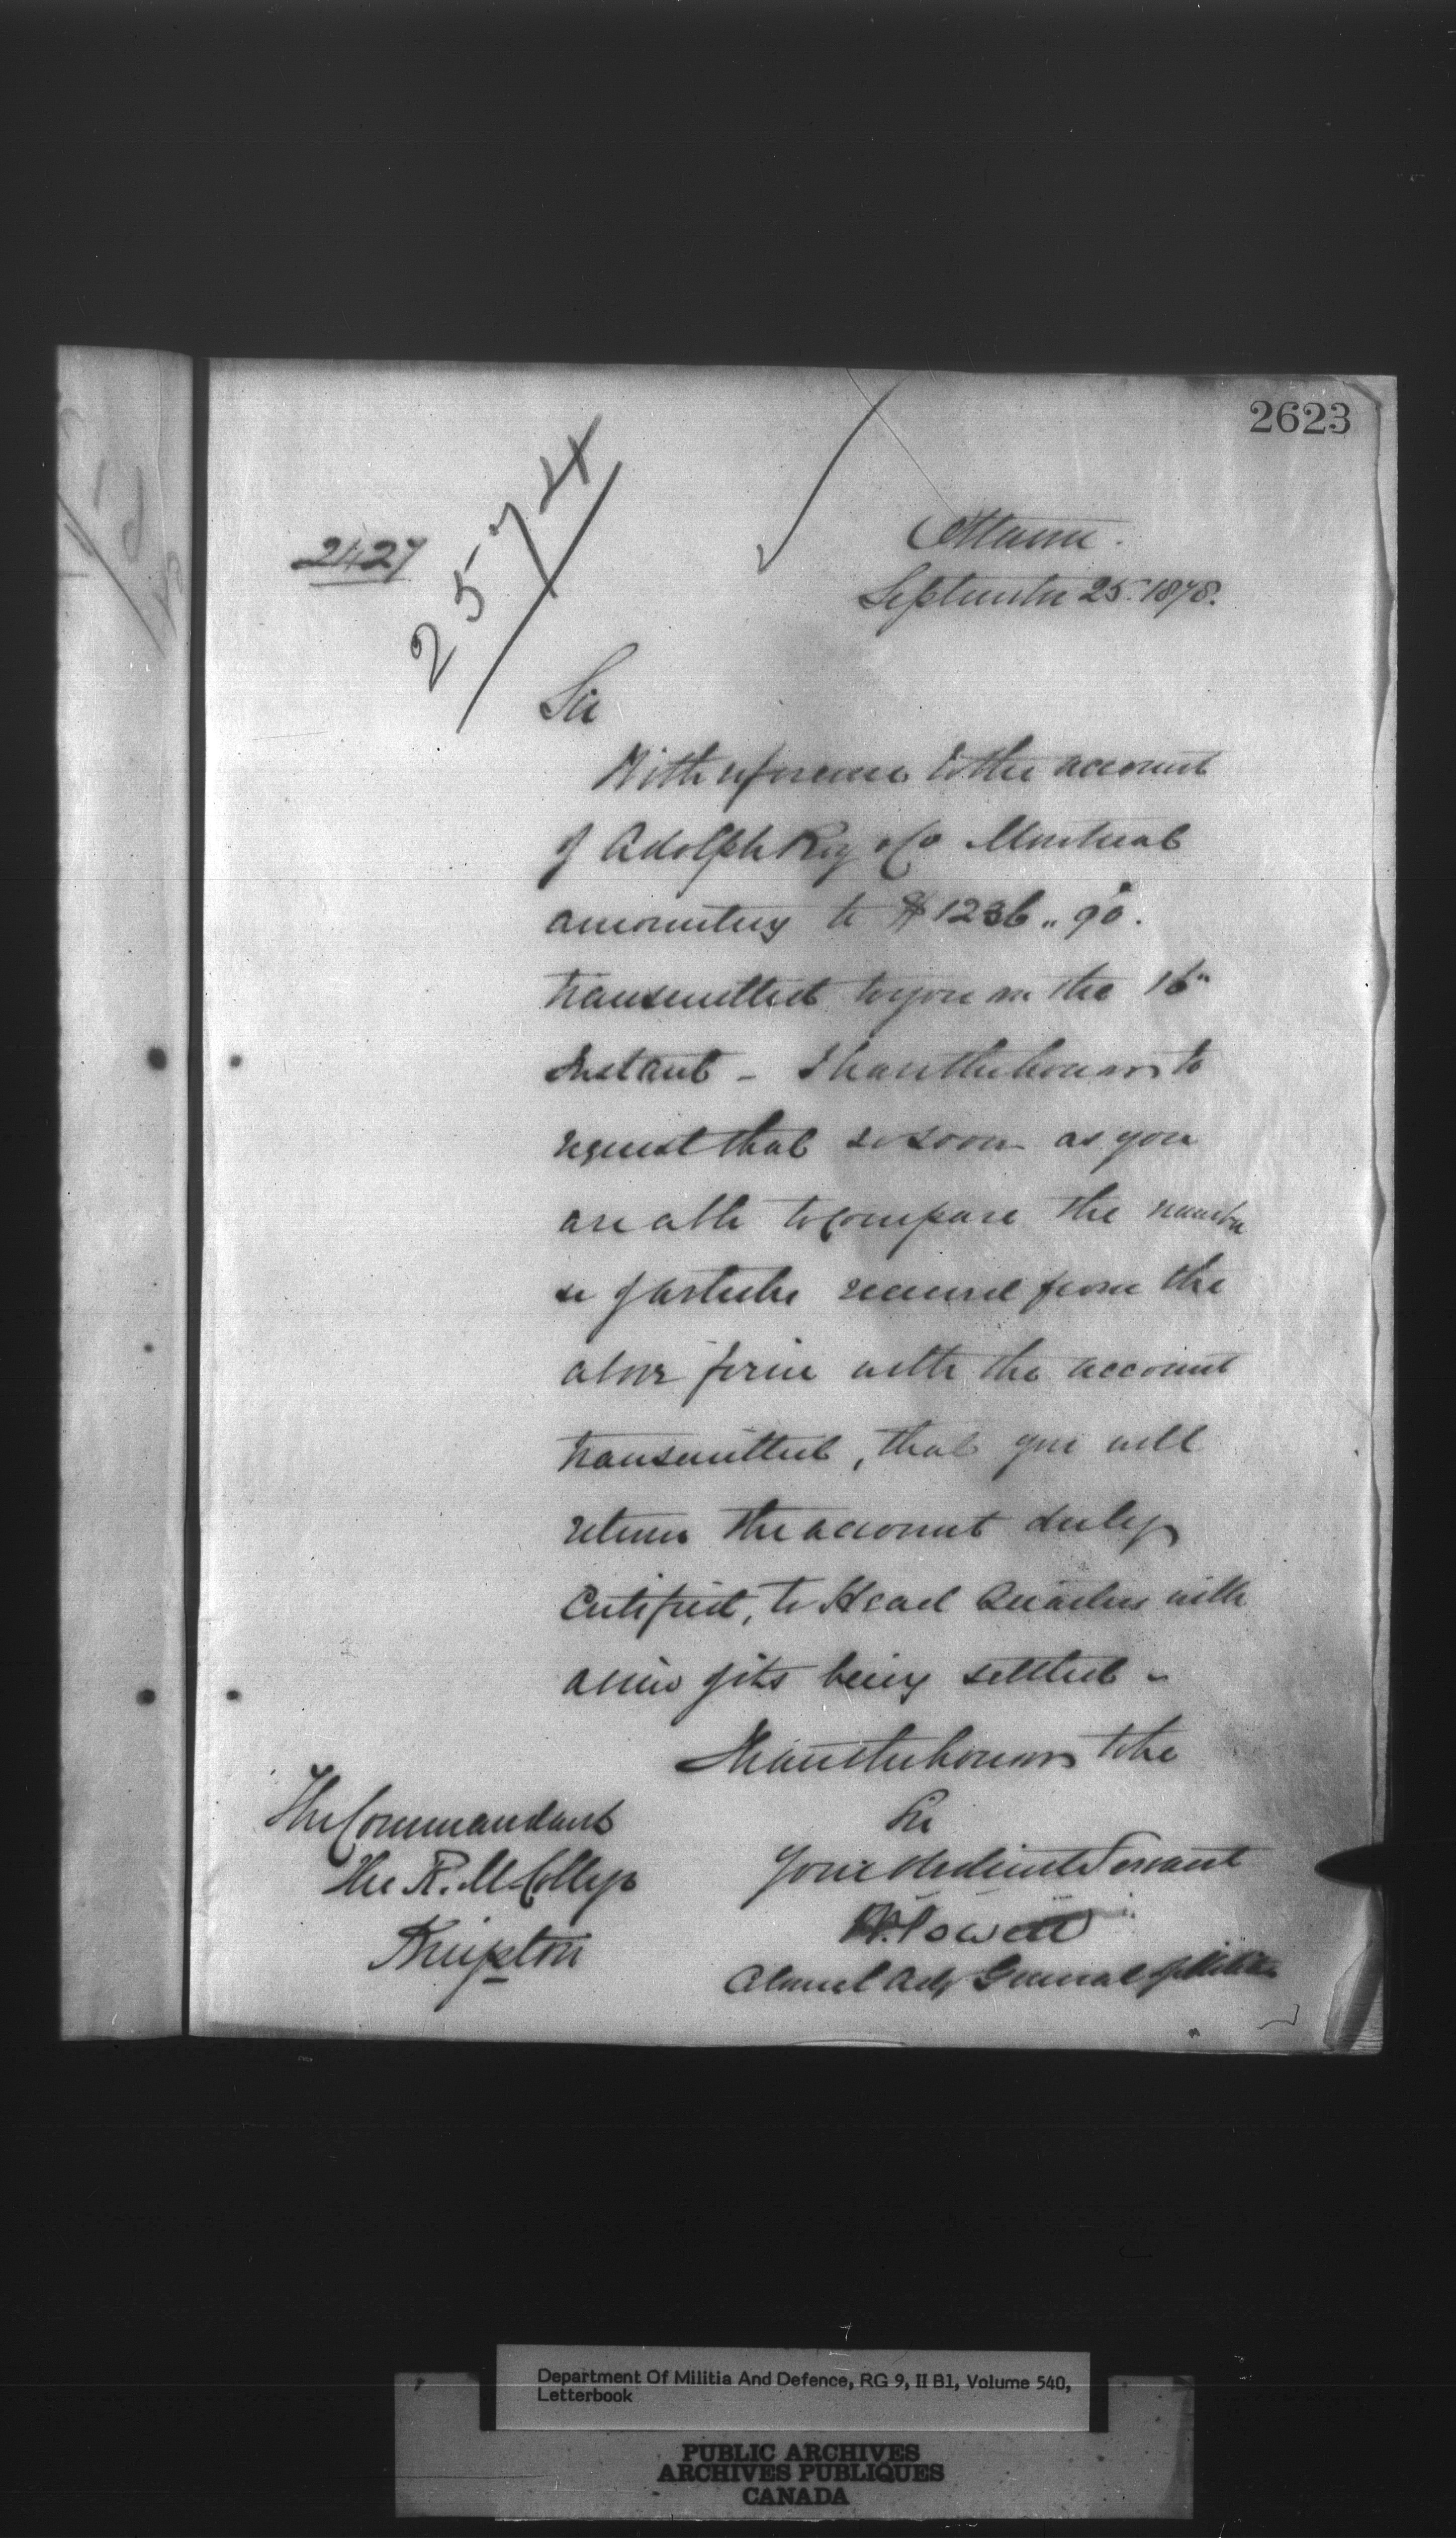 2623
2427
2574
Ottawa.
September 25. 1878.
Sir
With reference to the account
of Adolph Roy & Co Montreal
amounting to $1236.. 90.
transmitted to you on the 16"
Instant - I have the honour to
request that so soon as you
are able to compare the number
of articles received from the
above firm with the account
transmitted, that you will
return the account duly
Certified, to Head Quarters with
a view of its being settled -
I have the honour to be
Sir
Your obedient Servant
W. Powell
Colonel Adj General of Militia
The Commandant
The R. M. College
Kingston
Department Of Militia And Defence, RG 9, II B1, Volume 540,
Letterbook
PUBLIC ARCHIVES
ARCHIVES PUBLIQUES
CANADA